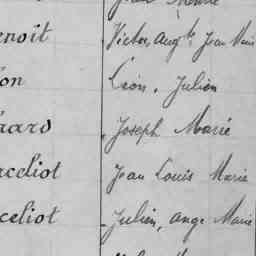 enoît Victor, Aug.te Jean Marie
on Léon, Julien
Joseph Marie
celiot Jean Louis Marie
celiot Julien, ange Marie